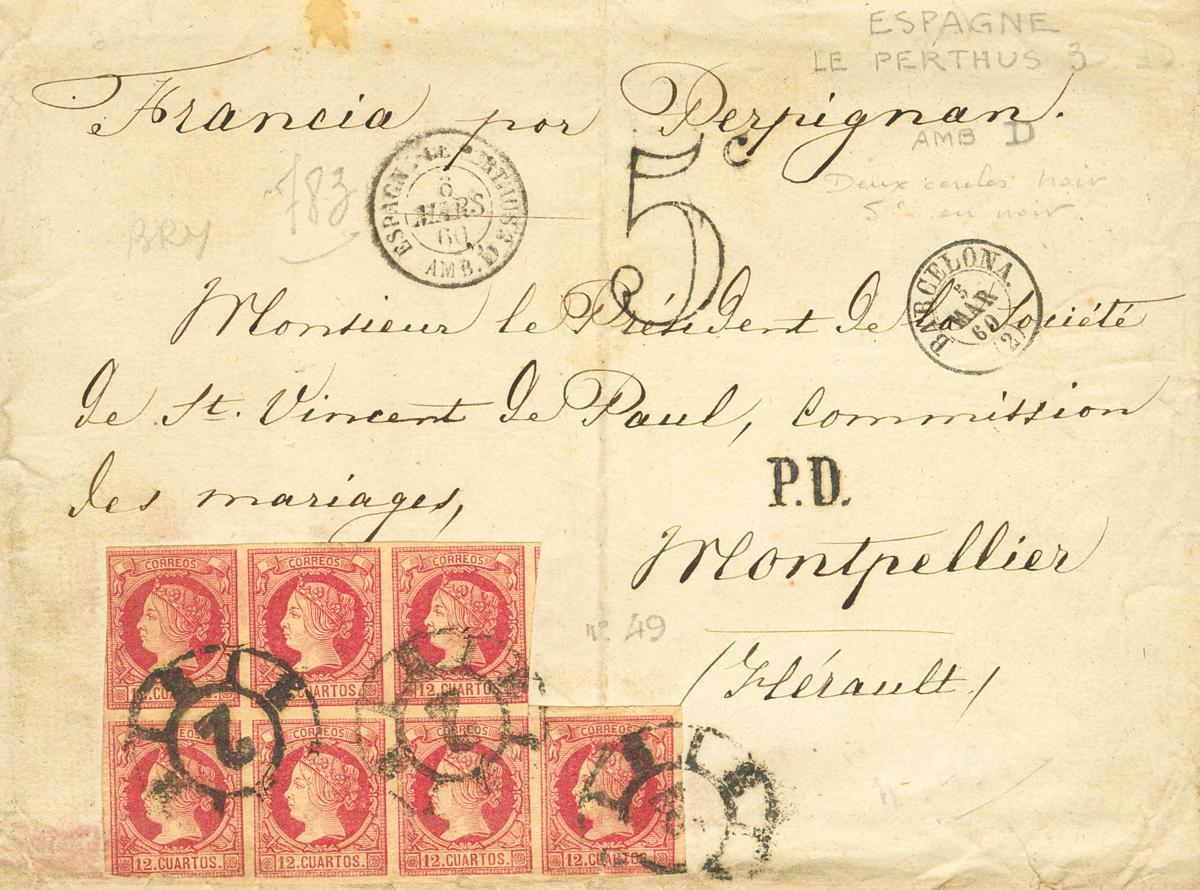 ESPAGNE
LE PERTHUS 3 D
Francia por Perpignan.
AMB D
783
ESPAGNE LE PERTHUS 3
6
MARS
60
AMB. D
5c
Deux cercles noir
5c en noir.
BRY
BARCELONA.
5
MAR
60
(2)
Monsieur le Président de la Société
de St. Vincent de Paul, Commission
des mariages,
P.D.
Montpellier
nº 49
(Hérault)
CORREOS CORREOS CORREOS
12. CUARTOS. 12. CUARTOS. 12. CUARTOS.
2 2
CORREOS CORREOS CORREOS CORREOS
12. CUARTOS. 12. CUARTOS. 12. CUARTOS. 12. CUARTOS.